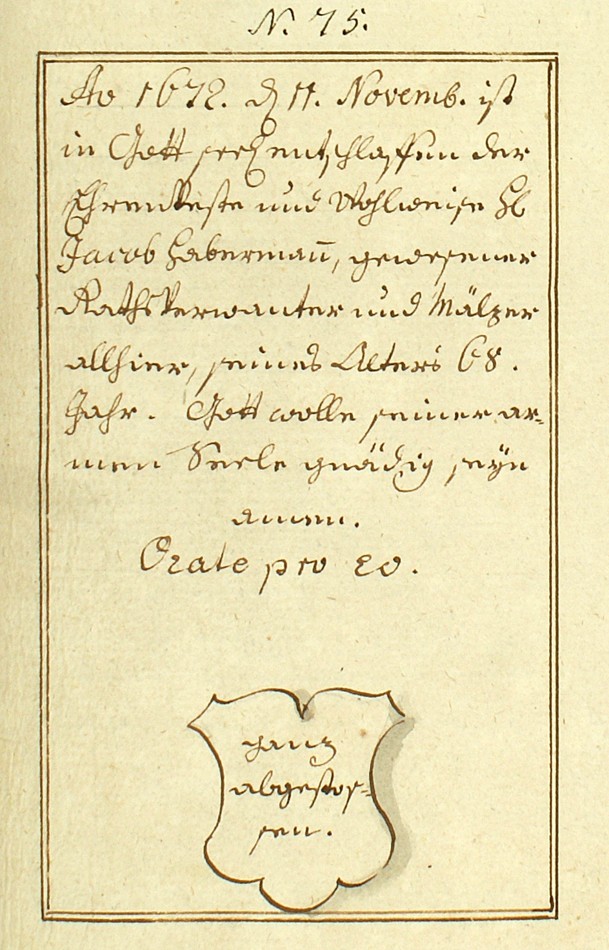 N. 75.
Ao 1672. d 11. Novemb. ist
in Gott seel entschlaffen der
Ehrenveste und Wohlweise H
Jacob Habermañ, gewesener
Raths Verwanter und Mälzer
allhier, seines Alters 68.
Jahr. Gott wolle seiner ar-
men Seele gnädig seÿn
amen.
Orate pro eo.
ganz
abgestos-
sen.